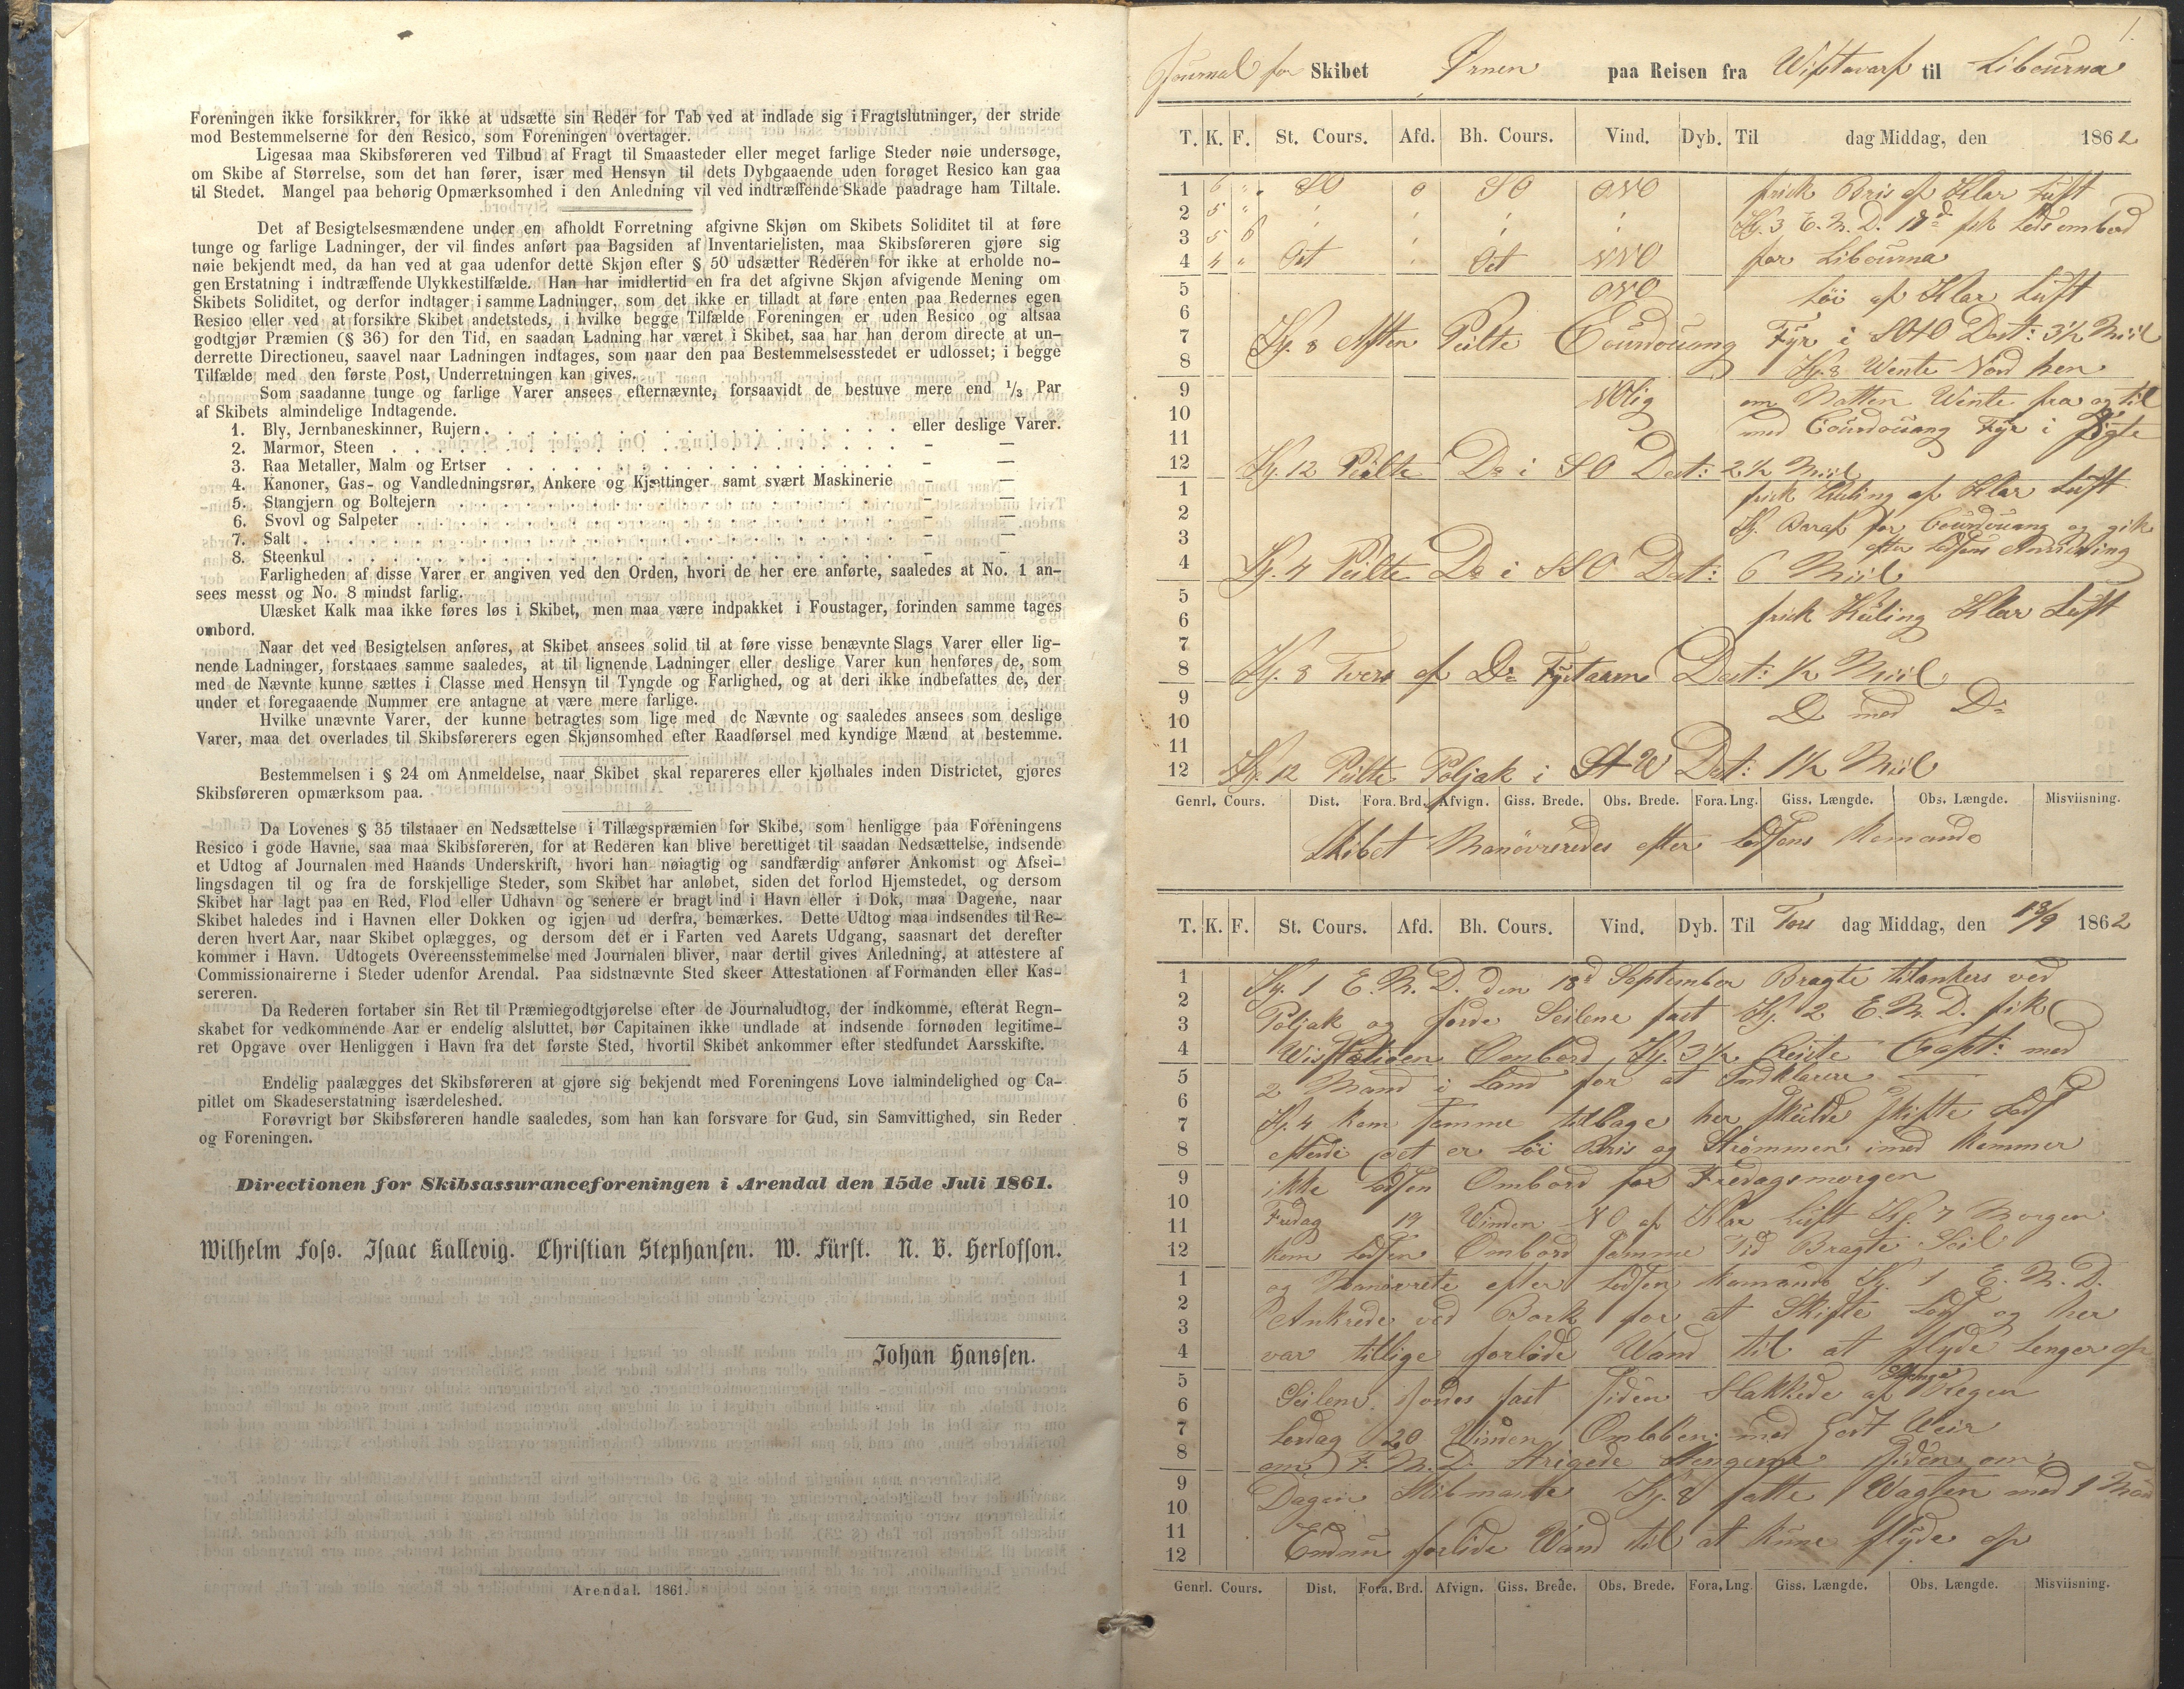 Foreningen ikke forsikkrer, for ikke at udsætte sin Reder for Tab ved at indlade sig i Fragtslutninger, der stride
mod Bestemmelserne for den Resico, som Foreningen overtager.
Ligesaa maa Skibsføreren ved Tilbud af Fragt til Smaasteder eller meget farlige Steder nøie undersøge,
om Skibe af Størrelse, som det han fører, især med Hensyn til dets Dybgaaende uden forøget Resico kan gaa
til Stedet. Mangel paa behørig Opmærksomhed i den Anledning vil ved indtræffende Skade paadrage ham Tiltale.
Det af Besigtelsesmændene under en afholdt Forretning afgivne Skjøn om Skibets Soliditet til at føre
tunge og farlige Ladninger, der vil findes anført paa Bagsiden af Inventarielisten, maa Skibsføreren gjøre sig
nøie bekjendt med, da han ved at gaa udenfor dette Skjøn efter § 50 udsætter Rederen for ikke at erholde no-
gen Erstatning i indtræffende Ulykkestilfælde. Han har imidlertid en fra det afgivne Skjøn afvigende Mening om
Skibets Soliditet, og derfor indtager i samme Ladninger, som det ikke er tilladt at føre enten paa Redernes egen
Resico eller ved at forsikre Skibet andetsteds, i hvilke begge Tilfælde Foreningen er uden Resico og altsaa
godtgjør Præmien (§ 36) for den Tid, en saadan Ladning har været i Skibet, saa har han derom directe at un-
derrette Directioneu, saavel naar Ladningen indtages, som naar den paa Bestemmelsesstedet er udlosset; i begge
Tilfælde med den første Post, Underretningen kan gives.
Som saadanne tunge og farlige Varer ansees efternævnte, forsaavidt de bestuve mere end 1/3 Par
af Skibets almindelige Indtagende.
1. Bly, Jernbaneskinner, Rujern . . . . . eller deslige Varer.
2. Marmor, Steen . . . . . - —
3. Raa Metaller, Malm og Ertser . . . . . - —
4. Kanoner, Gas- og Vandledningsrør, Ankere og Kjættinger samt svært Maskinerie - —
5. Stangjern og Boltejern . . . . . - —
6. Svovl og Salpeter . . . . . - —
7. Salt . . . . . - —
8. Steenkul . . . . . - —
Farligheden af disse Varer er angiven ved den Orden, hvori de her ere anførte, saaledes at No. 1 an-
sees messt og No. 8 mindst farlig.
Ulæsket Kalk maa ikke føres løs i Skibet, men maa være indpakket i Foustager, forinden samme tages
ombord.
Naar det ved Besigtelsen anføres, at Skibet ansees solid til at føre visse benævnte Slags Varer eller lig-
nende Ladninger, forstaaes samme saaledes, at til lignende Ladninger eller deslige Varer kun henføres de, som
med de Nævnte kunne sættes i Classe med Hensyn til Tyngde og Farlighed, og at deri ikke indbefattes de, der
under et foregaaende Nummer ere antagne at være mere farlige.
Hvilke unævnte Varer, der kunne betragtes som lige med de Nævnte og saaledes ansees som deslige
Varer, maa det overlades til Skibsførerers egen Skjønsomhed efter Raadførsel med kyndige Mænd at bestemme.
Bestemmelsen i § 24 om Anmeldelse, naar Skibet skal repareres eller kjølhales inden Districtet, gjøres
Skibsføreren opmærksom paa.
Da Lovenes § 35 tilstaaer en Nedsættelse i Tillægspræmien for Skibe, som henligge paa Foreningens
Resico i gode Havne, saa maa Skibsføreren, for at Rederen kan blive berettiget til saadan Nedsættelse, indsende
et Udtog af Journalen med Haands Underskrift, hvori han nøiagtig og sandfærdig anfører Ankomst og Afsei-
lingsdagen til og fra de forskjellige Steder, som Skibet har anløbet, siden det forlod Hjemstedet, og dersom
Skibet har lagt paa en Red, Flod eller Udhavn og senere er bragt ind i Havn eller i Dok, maa Dagene, naar
Skibet haledes ind i Havnen eller Dokken og igjen ud derfra, bemærkes. Dette Udtog maa indsendes til Re-
deren hvert Aar, naar Skibet oplægges, og dersom det er i Farten ved Aarets Udgang, saasnart det derefter
kommer i Havn. Udtogets Overeensstemmelse med Journalen bliver, naar dertil gives Anledning, at attestere af
Commissionairerne i Steder udenfor Arendal. Paa sidstnævnte Sted skeer Attestationen af Formanden eller Kas-
sereren.
Da Rederen fortaber sin Ret til Præmiegodtgjørelse efter de Journaludtog, der indkomme, efterat Regn-
skabet for vedkommende Aar er endelig alsluttet, bør Capitainen ikke undlade at indsende fornøden legitime-
ret Opgave over Henliggen i Havn fra det første Sted, hvortil Skibet ankommer efter stedfundet Aarsskifte.
Endelig paalægges det Skibsføreren at gjøre sig bekjendt med Foreningens Love ialmindelighed og Ca-
pitlet om Skadeserstatning isærdeleshed.
Forøvrigt bør Skibsføreren handle saaledes, som han kan forsvare for Gud, sin Samvittighed, sin Reder
og Foreningen.
Directionen for Skibsassuranceforeningen i Arendal den 15de Juli 1861.
Wilhelm Foss. Isaac Kallevig. Christian Stephansen. W. Fürst. N. B. Herlofson.
Johan Hanssen.
Arendal. 1861.
1.
Journal for Skibet Ørnen paa Reisen fra til Libourna
T. K. F. St. Cours. Afd. Bh. Cours. Vind. Dyb. Til dag Middag, den 1862
1 6 " SO 0 SO ONO frisk Bris af Klar Luft
2 5 " Kl. 3 E.M.D. 18d fik Lods ombord
3 5 6
4 4 " Ost Ost NNO for Libourna
5 ONO Löi af Klar Luft
6
7 Kl. 8 Aften Peilte Courdouang Fyr i Dest: 3½ Miil
8 Kl. 8 Wente Nord hen
9 NOlig om Natten Wente fra og til
10 med Courdouang Fyr i Sigte
11
12 Kl. 12 Peilte Do i SO Dest: 2½ Miil
1 frisk Kuling af Klar Luft
2 Kl. for Courdouang og gik
3 efter Lodsens Anviisning
4 Kl. 4 Peilte Do i SSO Dest: 6 Miil
5
6 frisk Kuling Klar Luft
7
8 Kl. 8 Tvers af Do Fyrtaarn Dest: ½ Miil
9
10 D med Do
11
12 Kl. 12 Peilte Poljak i Dest: 1½ Miil
Genrl. Cours. Dist. Fora. Brd. Afvign. Giss. Brede. Obs. Brede. Fora. Lng. Giss. Længde. Obs. Længde. Misviisning.
Skibet Manövreredes efter Lodsens Komando
T. K. F. St. Cours. Afd. Bh. Cours. Vind. Dyb. Til Tors dag Middag, den 18/9 1862
1 Kl. 1 E.M.D. den 18d September Bragte tilankers ved
2
3 Poljak og Seilene fast Kl. 2 E.M.D. fik
4 Ombord Kl. 3½ Reiste Capt: med
5 2 Mand i Land for at Indklarere
6
7 Kl. 4 kom samme tilbage her skulde skifte Lods
8 efterdi det er löi Bris og Strömmen imod kommer
9 ikke Lodsen Ombord för Fredagsmorgen
10 Fredag 19 Winden NO af Klar Luft Kl. 7 Morgen
11
12 kom Lodsen Ombord samme Tid Bragte Seil
1 og Manövrete efter Lodsens komando Kl. 1 E.M.D.
2 Ankrede ved Bork for at Skifte Lods og her
3
4 var tillige forlide Wand til at flyde lenger op
5 Stenge
6 Seilene fast siden Slakkede af Regen
7 Lördag 20 Winden Omlöben med Gott Weir
8 om F.M.D. Strigede Stengerne siden om
9 Dagen Skibmante Kl. 8 satte Wagten med 1 Man
10
11
12 Endnu forlide Wand til at kune flyde op
Genrl. Cours. Dist. Fora. Brd. Afvign. Giss. Brede. Obs. Brede. Fora. Lng. Giss. Længde. Obs. Længde. Misviisning.